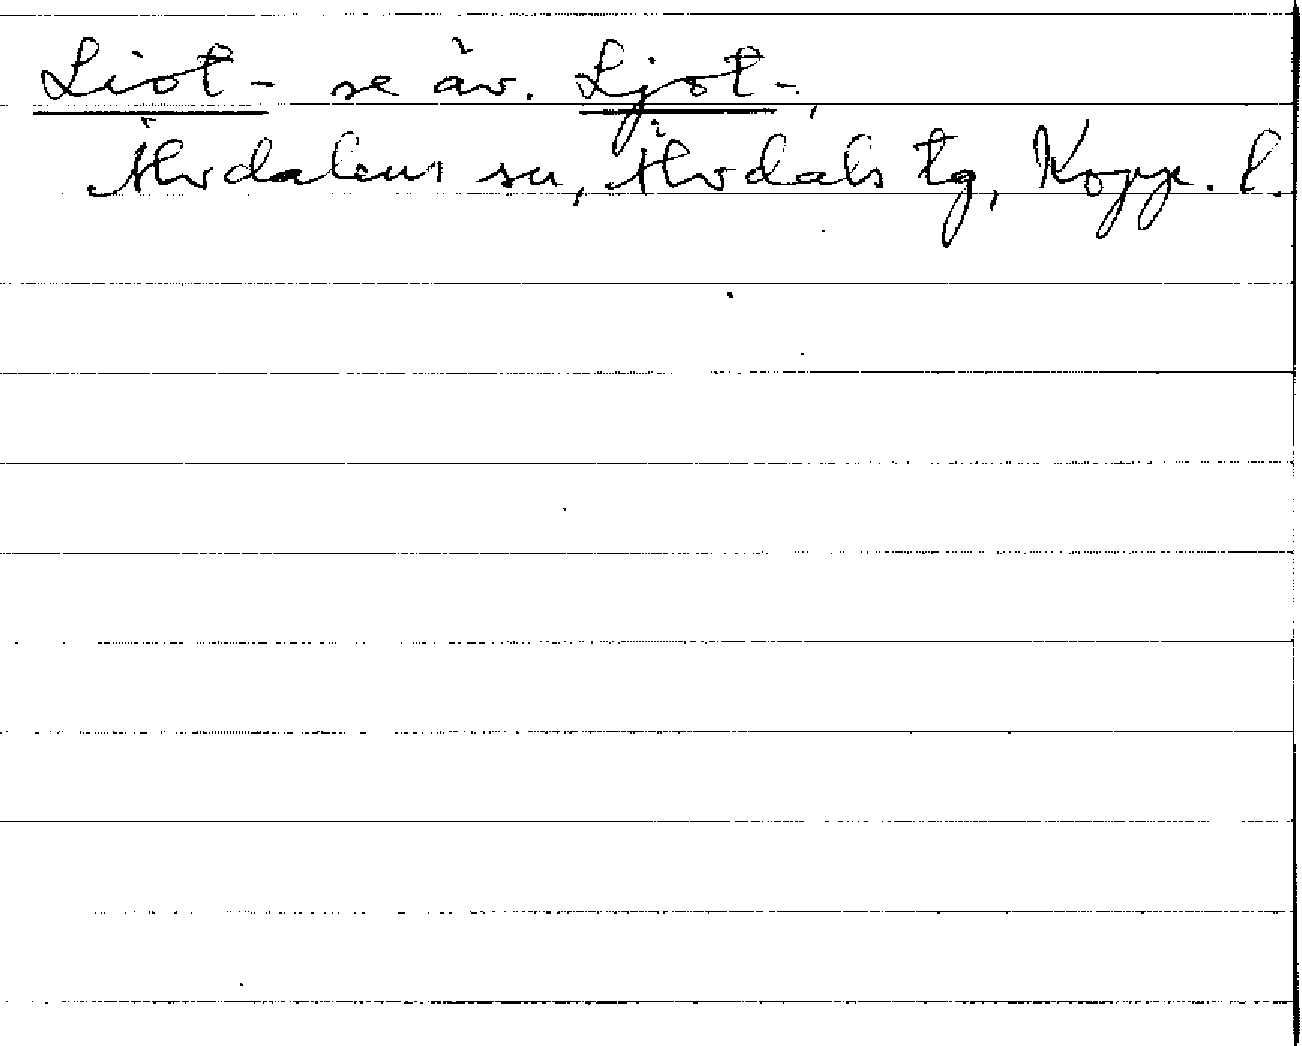 Liot- se äv. Ljot-,
Älvdalens sn, Älvdals tg, Kopp. l.